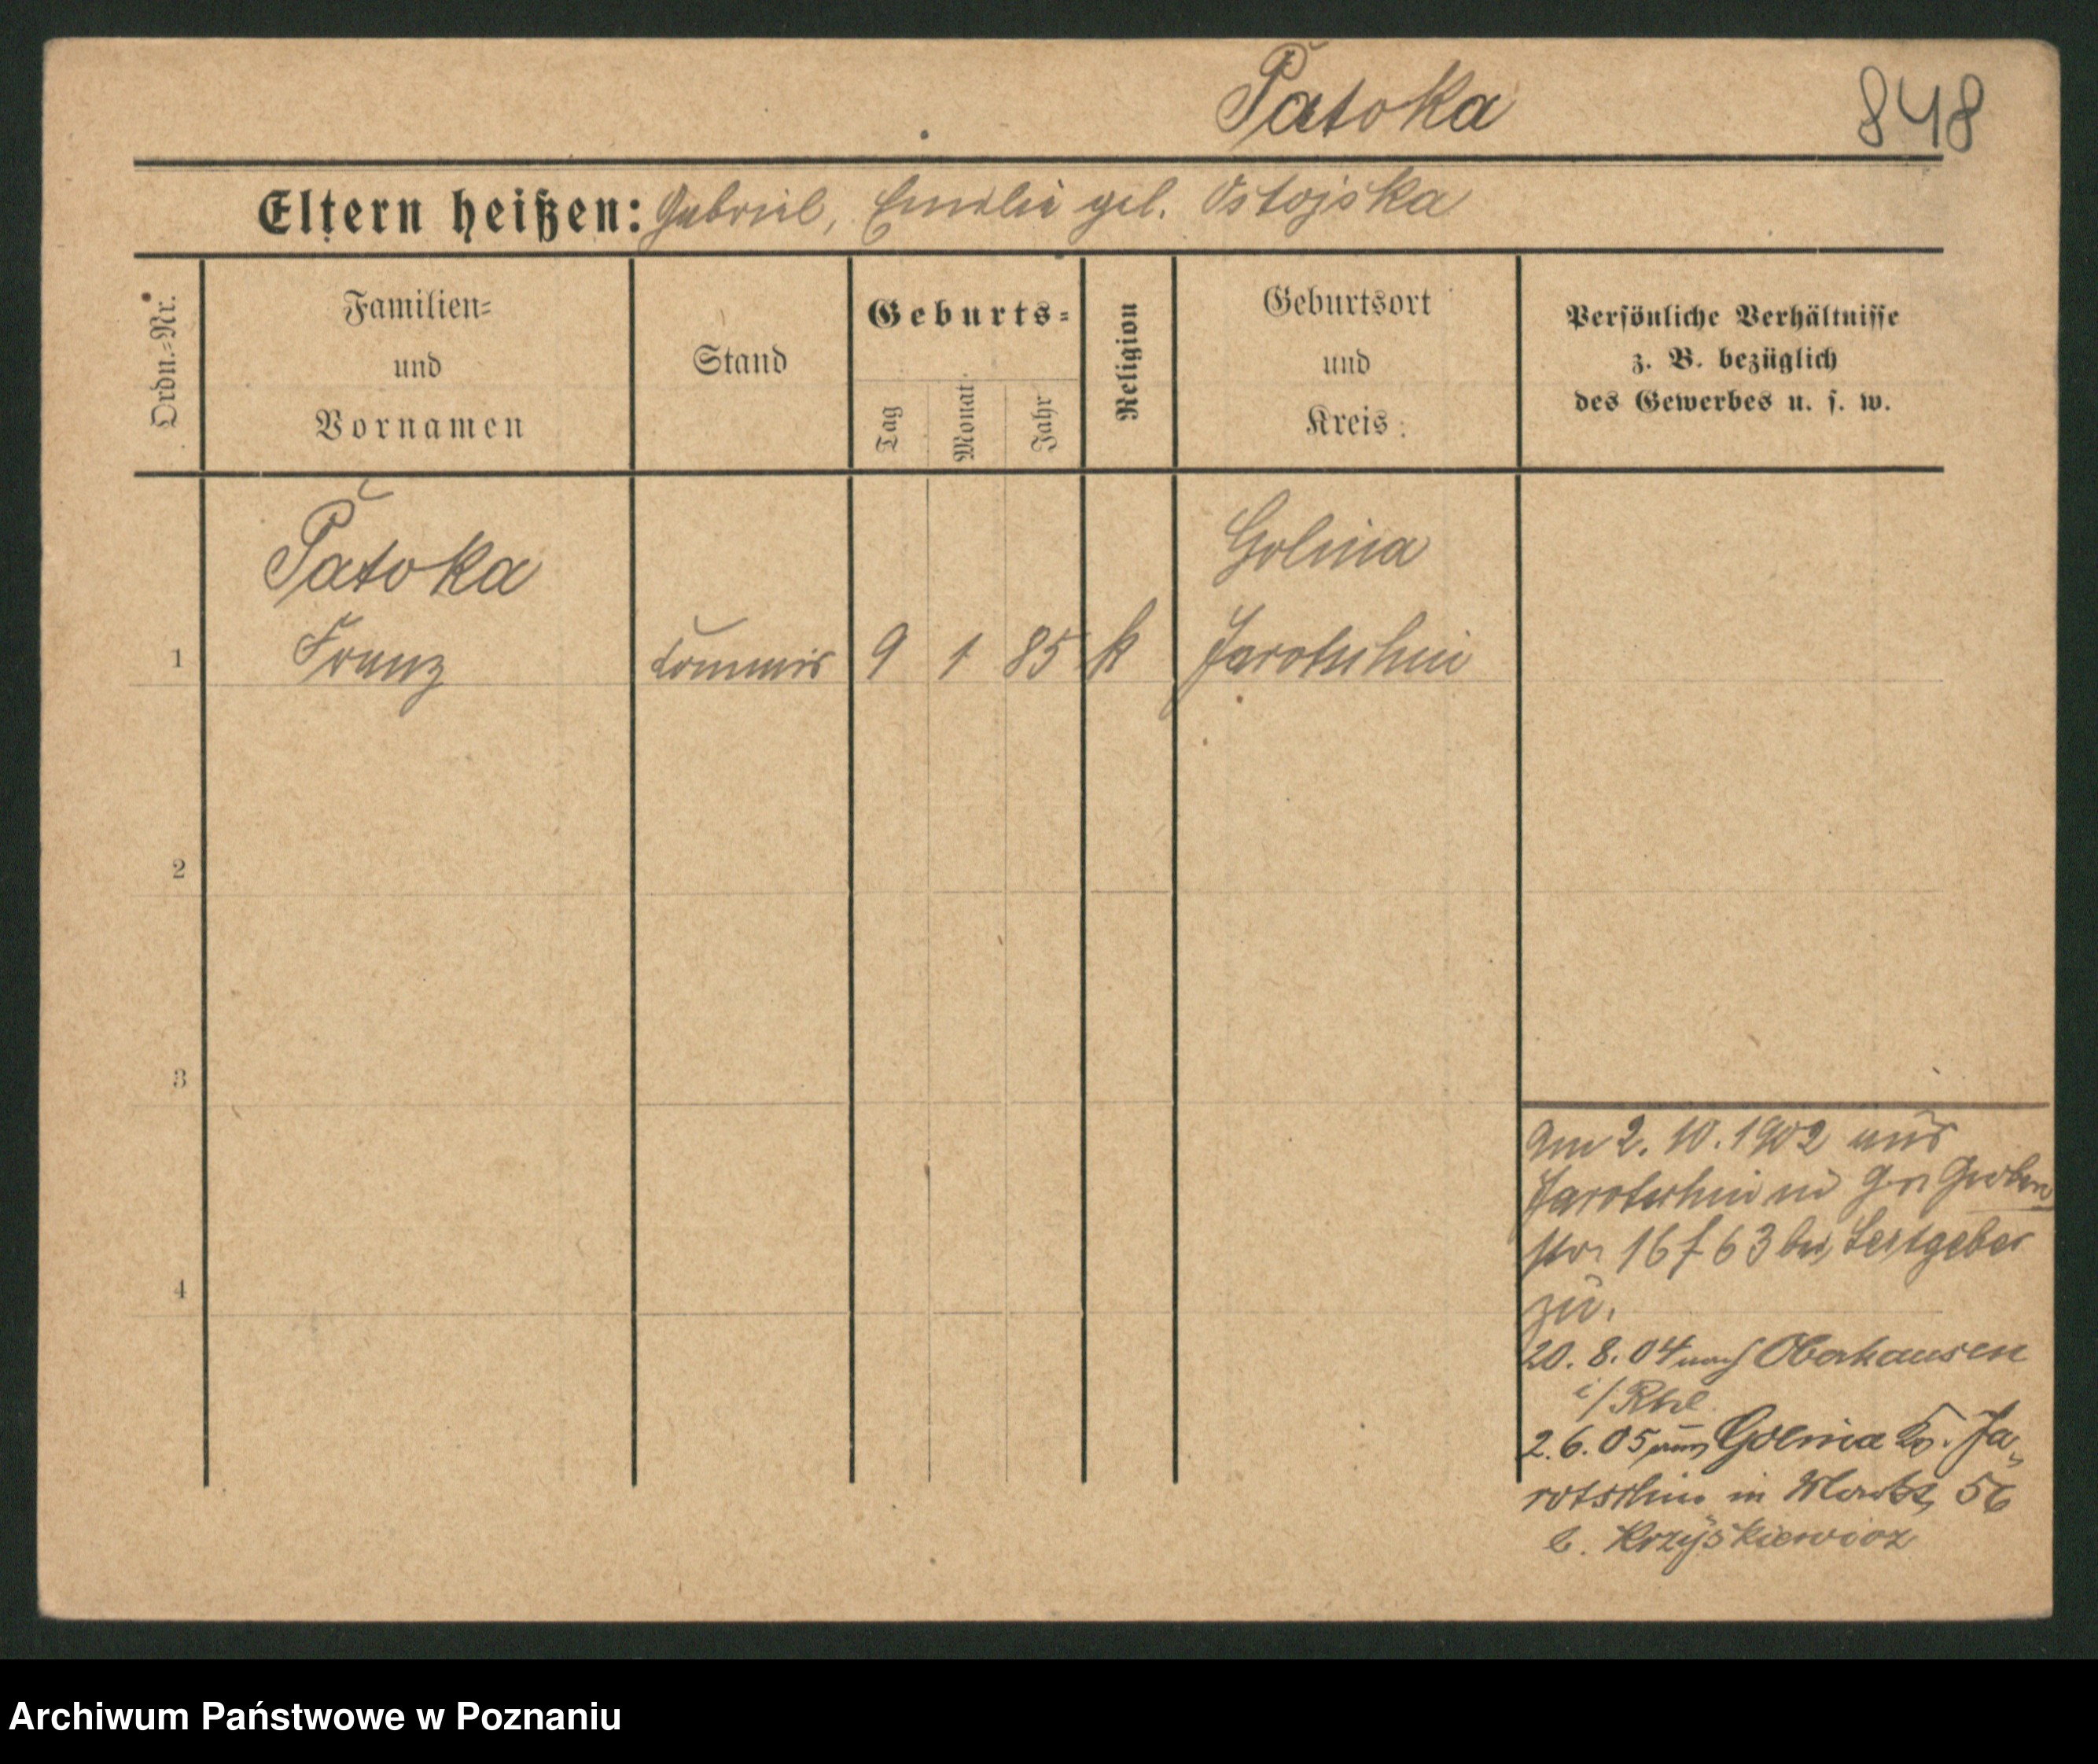 Patoka
848
Eltern heißen: Gabriel, Emilie geb. Ostojska
Ordn.-Nr.
Familien-
und
Vornamen
Stand
Geburts-
Tag
Monat
Jahr
Religion
Geburtsort
und
Kreis
Persönliche Verhältnisse
z. B. bezüglich
des Gewerbes u. s. w.
Patoka
Golina
1 Franz Commis 9 1 85 k Jarotschin
2
3
4
Am 2. 10. 1902 aus
Jarotschin in Gr. Gerber
str. 16 f 63 bei Leitgeber
zu.
20. 8. 04 nach Oberhausen
i/Rhl.
2. 6. 05 aus Golina Kr. Ja-
rotschin in 56
b. Krzyskiewicz
Archiwum Państwowe w Poznaniu